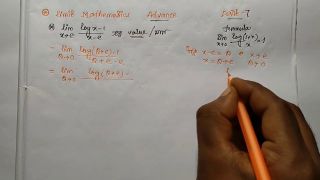 Limit Mathematics Advance Part-7
lim x→e (log x - 1)/(x - e) value
formula
lim x→0 log(1+x)/x = 1
= lim h→0 (log(h+e) - 1)/(h+e-e)
x-e = h x→e
x = h+e h→0
= lim h→0 log(h+e) -